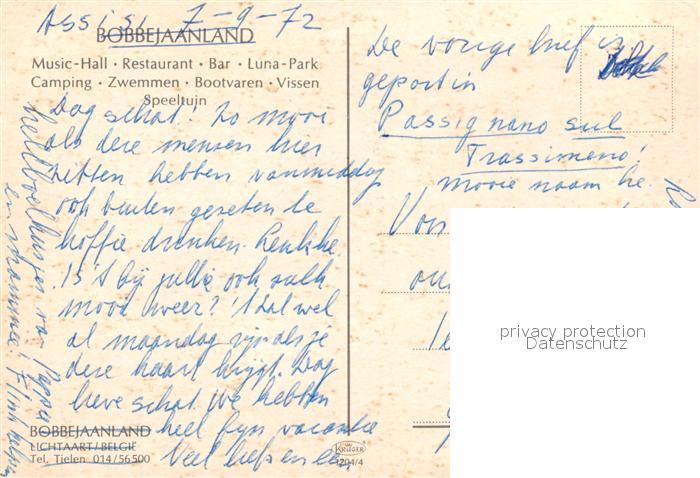 Assisi 7-9-72
BOBBEJAANLAND
Music-Hall · Restaurant · Bar · Luna-Park
Camping · Zwemmen · Bootvaren · Vissen
Speeltuin
Dag schat! Zo mooi
als deze mensen hier
zitten hebben vanmiddag
ook buiten gezeten te
koffie drinken. Leuk he.
Is 't bij jullie ook zulk
mooi weer? 't Zal wel
al maandag zijn als je
deze kaart krijgt. Dag
lieve schat. We hebben
heel fijn vacantie
Veel liefs en een
van Pappa
en mamma!
BOBBEJAANLAND
LICHTAART/BELGIE
Tel. Tielen 014/56500
KRÜGER
1204/4
De vorige brief is
gepost in
Passignano sul
Trassimeno!
mooie naam he.
privacy protection
Datenschutz